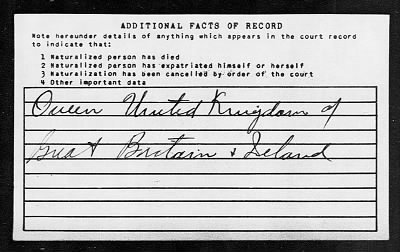 ADDITIONAL FACTS OF RECORD
Note hereunder details of anything which appears in the court record
to indicate that:
1 Naturalized person has died
2 Naturalized person has expatriated himself or herself
3 Naturalization has been cancelled by order of the court
4 Other important data
Queen United Kingdom of
Great Britain & Ireland